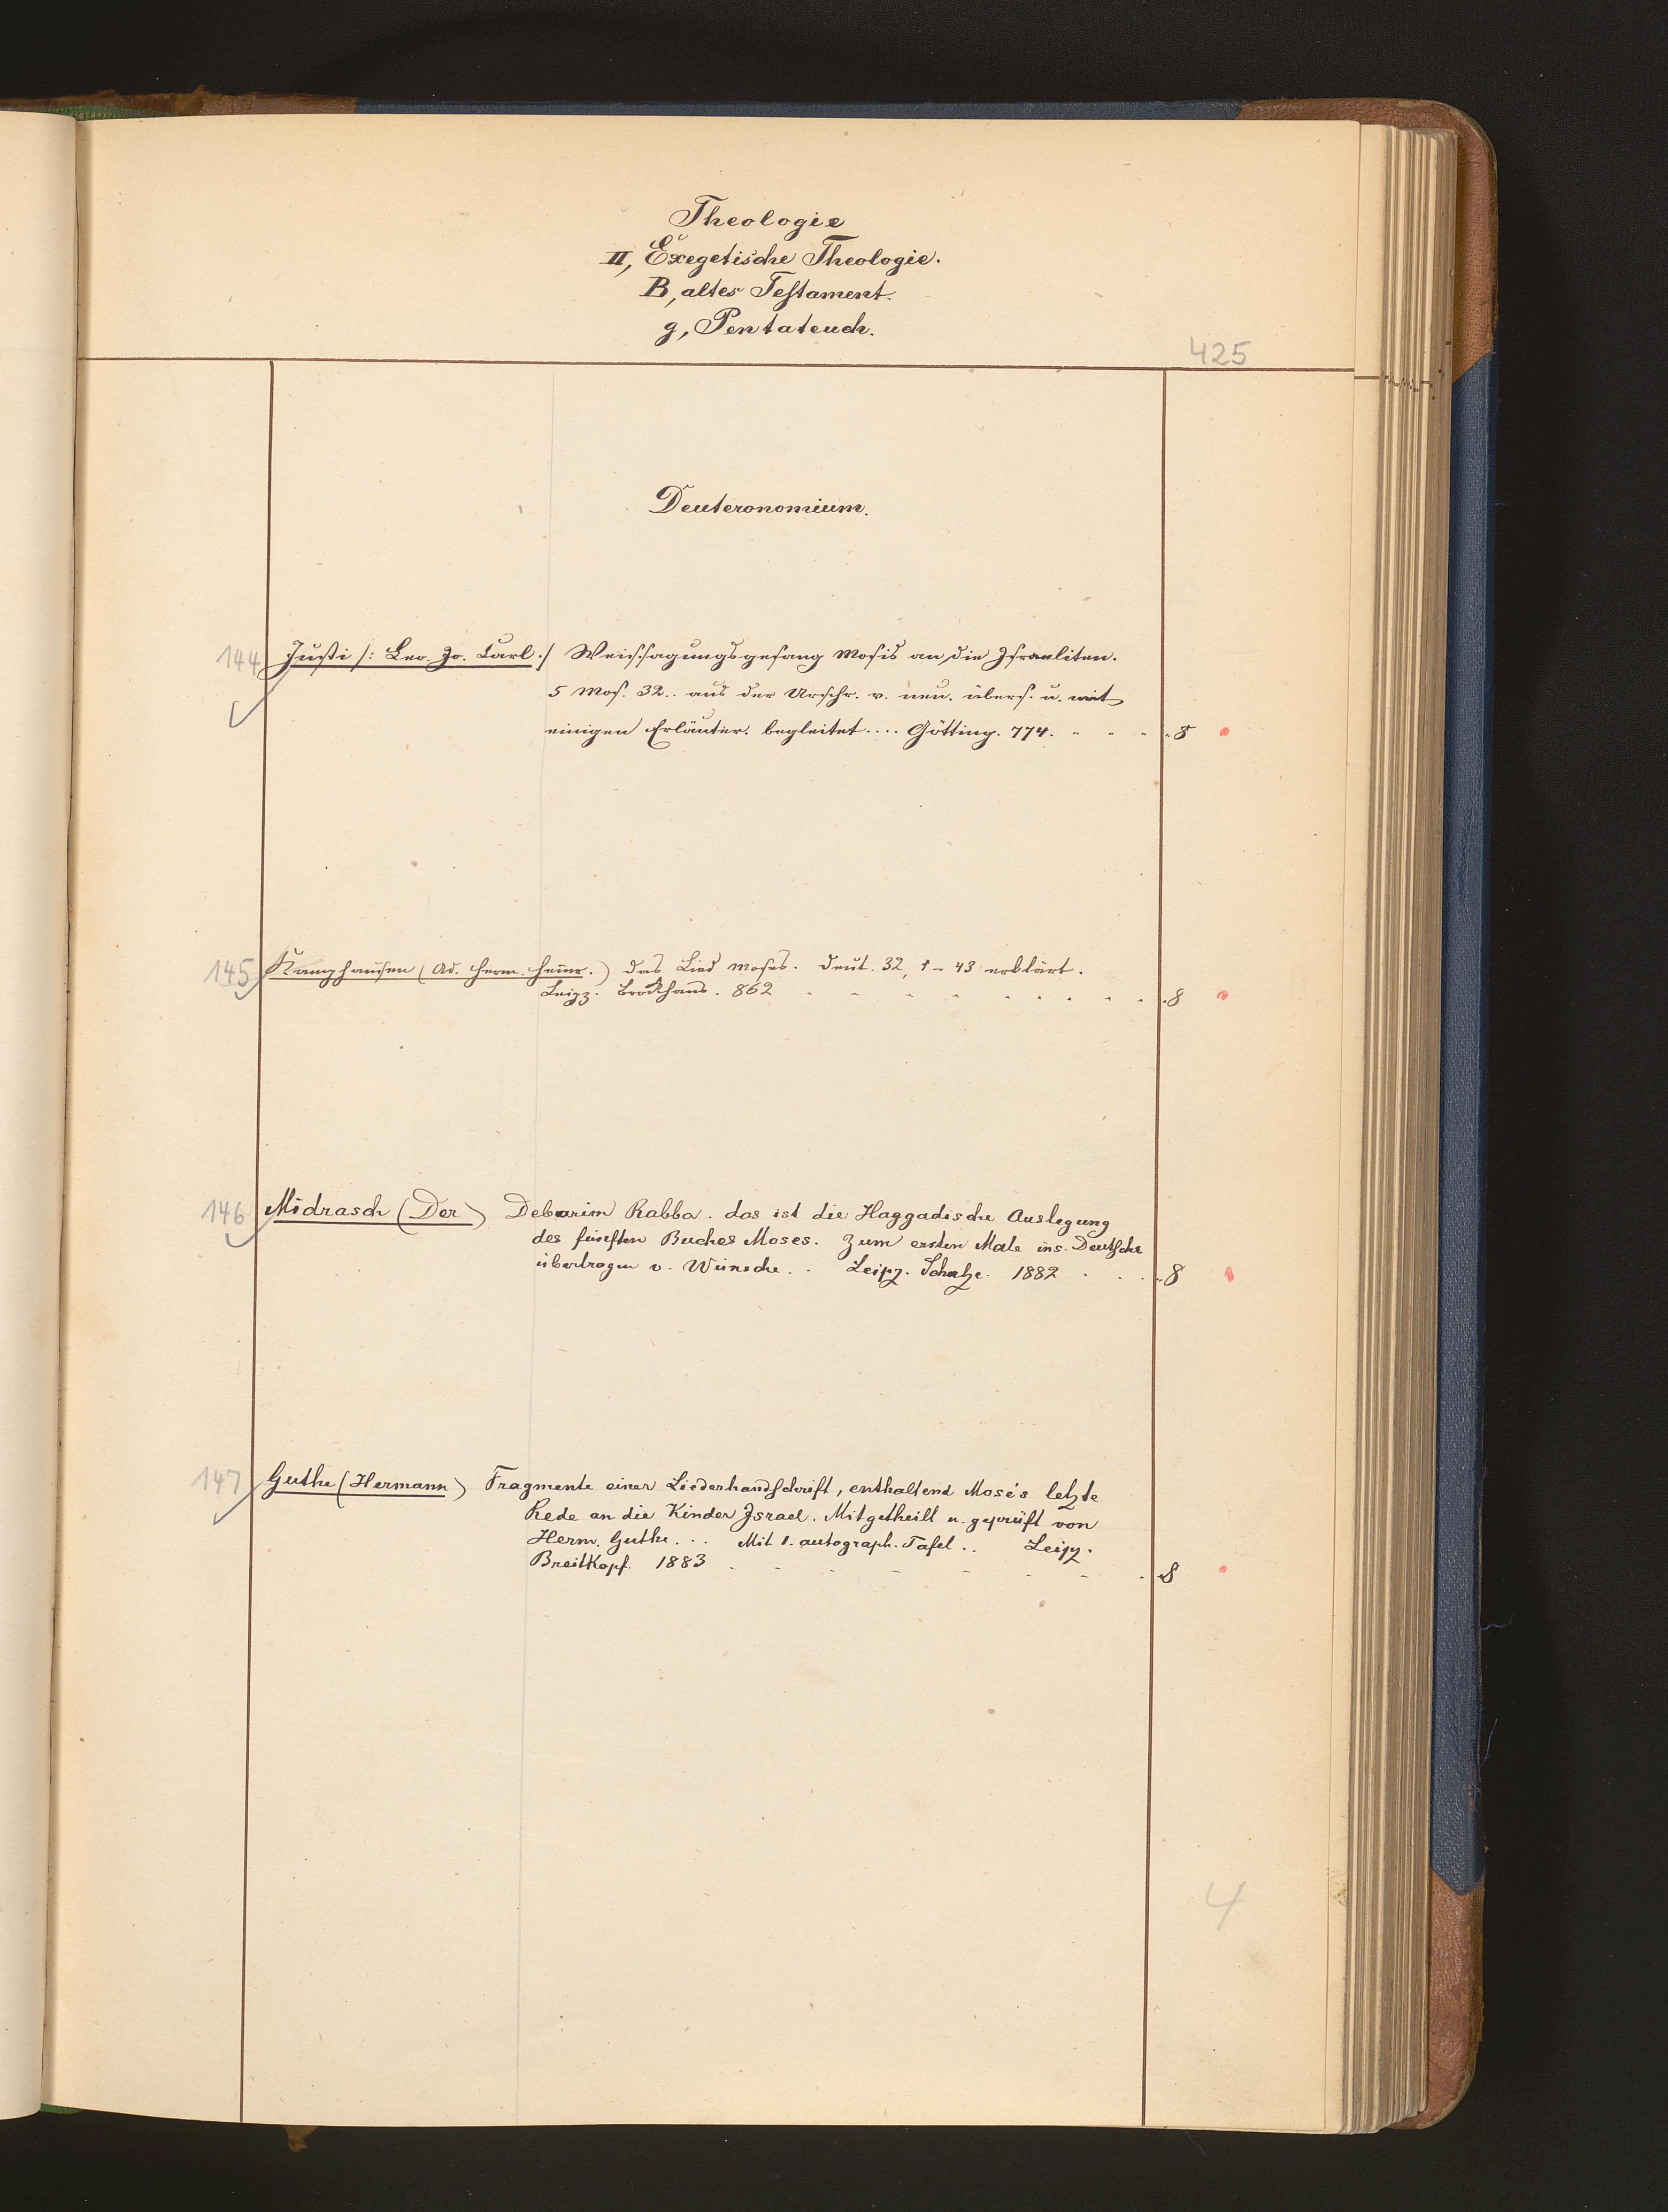 Theologie
II, Exegetische Theologie.
B, altes Testament.
g, Pentateuch.
425
Deuteronomium.
144 Justi /: Leo. Jo. Carl :/ Weissagungsgesang Mosis an die Israeliten.
5 Mos. 32.. aus der Urschr. v. neu. übers. u. mit
einigen Erläuter. begleitet.... Götting. 774. 8
145 Kamphausen (Ad. Herm. Heinr.) das Lied Moses. Deut. 32, 1-43 erklärt.
Leipz. Brockhaus. 862 8
146 Midrasch (Der) Debarim Rabba. das ist die Haggadische Auslegung
des fünften Buches Moses. Zum ersten Male ins Deutsche
übertragen v. Wünsche.. Leipz. 1882 8
147 Guthe (Hermann) Fragmente einer Lederhandschrift, enthaltend Mose's letzte
Rede an die Kinder Israel. Mitgetheilt u. geprüft von
Herm. Guthe... Mit 1. autograph. Tafel.. Leipz.
Breitkopf. 1883 8
4